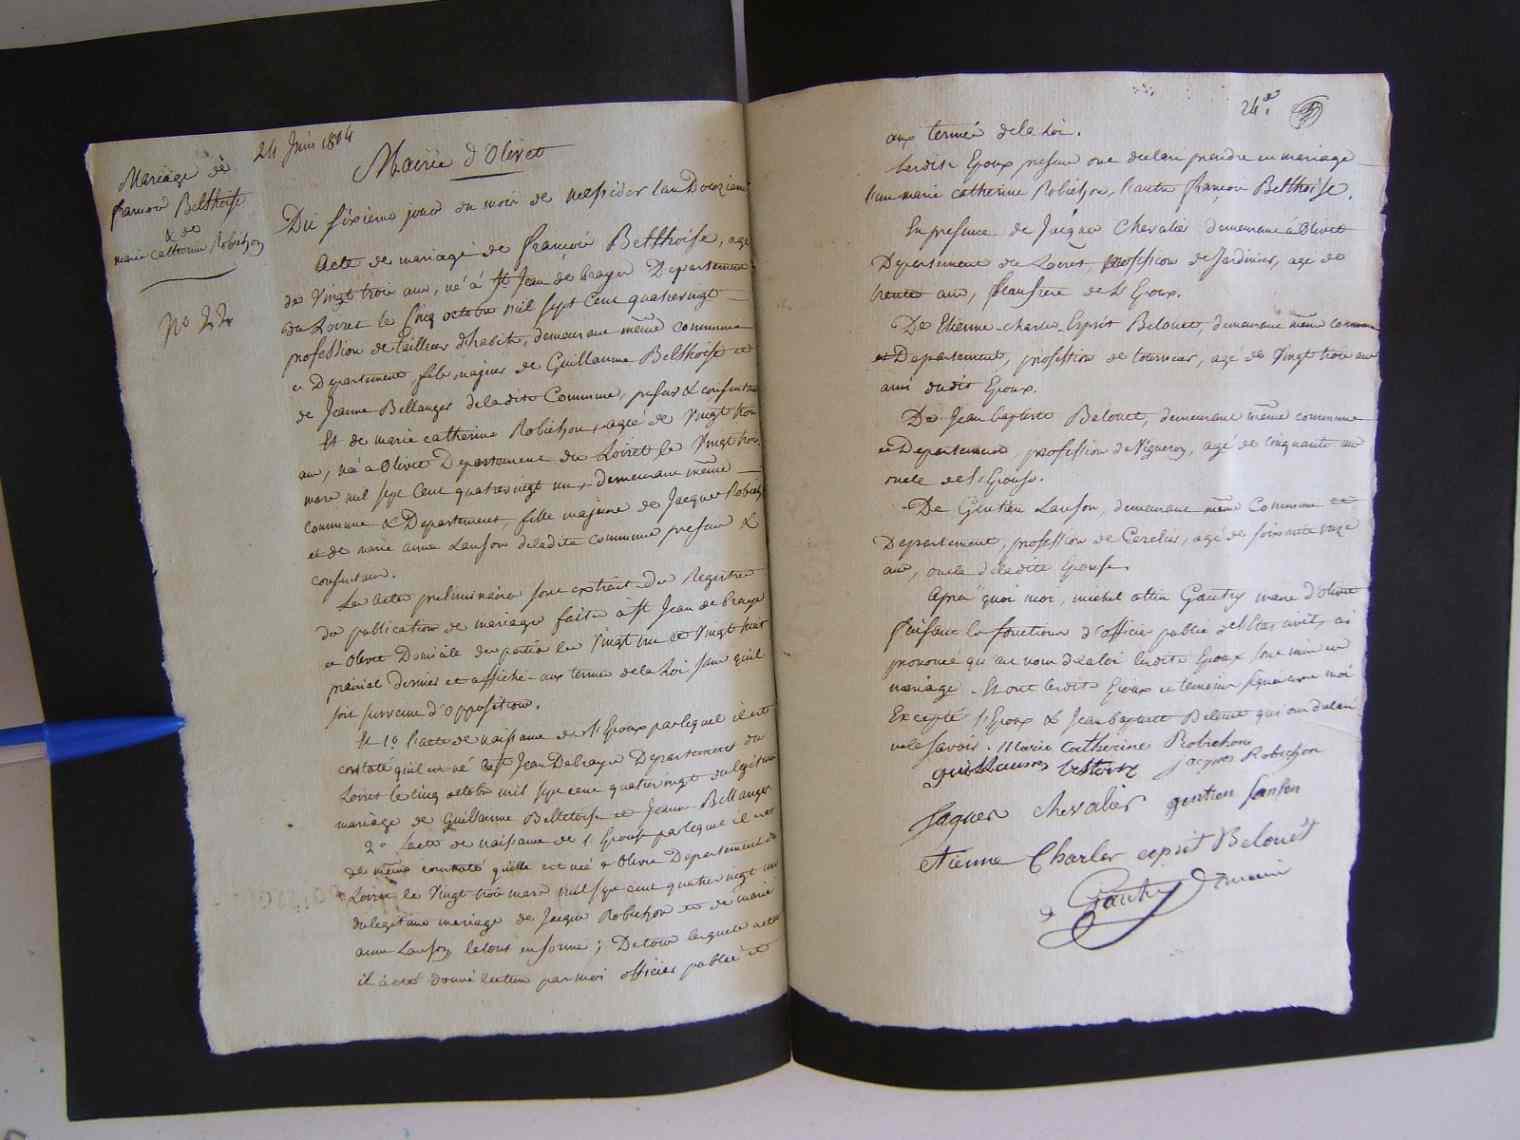 24 Juin 1804
Mariage de
francois Belthoise
& de
marie catherine Robichon
No 22
Mairie d'Olivet
Du sixieme jour du mois de messidor l'an Douzieme
Acte de mariage de francois Belthoise, agé
de vingt trois ans, né à st Jean de braye Departement
du Loiret le cinq octobre mil sept cent quatrevingt
profession de tailleur d'habits, demeurant même commune
et Departement, fils majeur de Guillaume Belthoise et
de Jeanne Bellanger de ladite Commune, presens & consentans
Et de marie catherine Robichon, agée de vingt trois
ans, née a Olivet Departement du Loiret le vingt trois
mars mil sept cent quatrevingt un, demeurant même
commune & Departement, fille majeure de Jacques Robichon
et de marie anne Lanson de ladite commune presens &
consentans.
Les actes preliminaires sont extrait du Registre
de publication de mariage faite a st Jean de braye
et Olivet Domicile des parties les vingt un et vingt huit
prairial dernier et affiché aux termes de la Loi sans qu'il
soit survenu d'opposition.
Et 1o l'acte de naissance du d. Epoux par lequel il est
constaté qu'il est né a st Jean De braye Departement du
Loiret le cinq octobre mil sept cent quatrevingt du légitime
mariage de Guillaume Belthoise et Jeanne Bellanger
2o L'acte de naissance de d. Epouse par lequel il est
de même constaté qu'elle est née a Olivet Departement du
Loiret le vingt trois mars mil sept cent quatrevingt un
du legitime mariage de Jacques Robichon et de marie
anne Lanson le tout en forme ; De tous lesquels actes
il a été donné lecture par moi officier public et
24e
aux termes de la Loi.
Lesdits Epoux presens ont declaré prendre en mariage
l'un marie catherine Robichon, l'autre françois Belthoise.
En presence de Jacques Chevalier demeurant à Olivet
Departement du Loiret, profession de Jardinier, agé de
trente ans, beaufrere de d. Epoux.
De Etienne-charles-Esprit Belouet, demeurant même commune
et Departement, profession de tourneur, agé de vingt trois ans
ami dudit Epoux.
De Jean baptiste Belouet, demeurant même commune
et Departement, profession de vigneron, agé de cinquante ans
oncle de d. Epouse.
De Gentien Lanson, demeurant même Commune et
Departement, profession de Cerclier, agé de soixante onze
ans, oncle de ladite Epouse.
Après quoi moi, michel Gautry maire d'Olivet
faisant les fonctions d'officier public de l'état civil, ai
prononcé qu'au nom de la loi lesdits Epoux sont unis en
mariage. Et ont lesdits Epoux et temoins signé avec moi
Excepté l'Epoux & Jean baptiste Belouet qui ont declaré
ne le savoir. Marie Catherine Robichon
guillaume Jacques Robichon
Jaques Chevalier gentien Lanson
etienne Charles esprit Belouët
Gautry maire